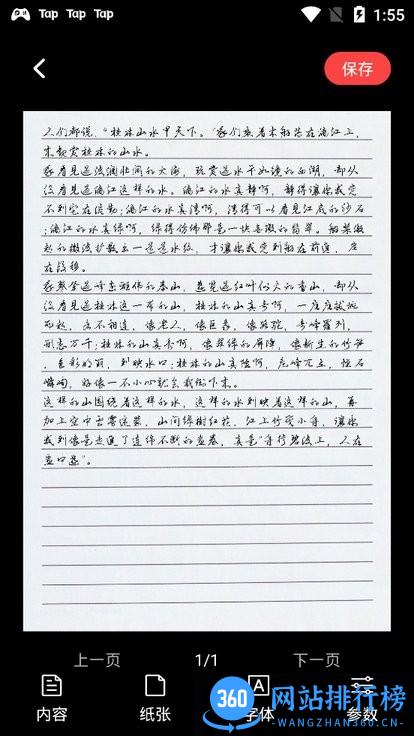 Tap Tap Tap Tap
1:55
保存
人们都说："桂林山水甲天下。"我们乘着木船荡在漓江上，
来观赏桂林的山水。
我看见过波澜壮阔的大海，玩赏过水平如镜的西湖，却从
没看见过漓江这样的水。漓江的水真静啊，静得让你感受
不到它在流动;漓江的水真清啊，清得可以看见江底的沙石
;漓江的水真绿啊，绿得仿佛那是一块无瑕的翡翠。船桨激
起的微波扩散出一道道水纹，才让你感觉到船在前进，岸
在后移。
我攀登过峰峦雄伟的泰山，游览过红叶似火的香山，却从
没看见过桂林这一带的山，桂林的山真奇啊，一座座拔地
而起，各不相连，像老人，像巨象，像骆驼，奇峰罗列，
形态万千;桂林的山真秀啊，像翠绿的屏障，像新生的竹笋
，色彩明丽，倒映水中;桂林的山真险啊，危峰兀立，怪石
嶙峋，好像一不小心就会栽倒下来。
这样的山围绕着这样的水，这样的水倒映着这样的山，再
加上空中云雾迷蒙，山间绿树红花，江上竹筏小舟，让你
感到像是走进了连绵不断的画卷，真是"舟行碧波上，人在
画中游"。
上一页 1/1 下一页
内容 纸张 字体 参数
360 网站排行榜
-WANGZHAN360.CN-